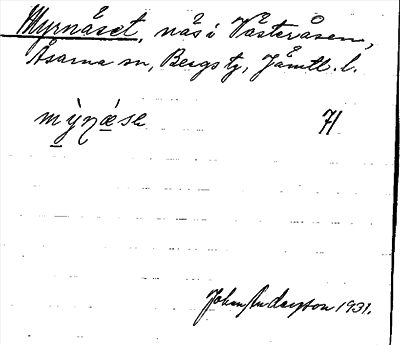 Myrnäset, näs i Västeråsen,
Åsarna sn, Bergs tg, Jämtl. l.
mỳn̩ǽsɛ 71
Johan Anderzon 1931.